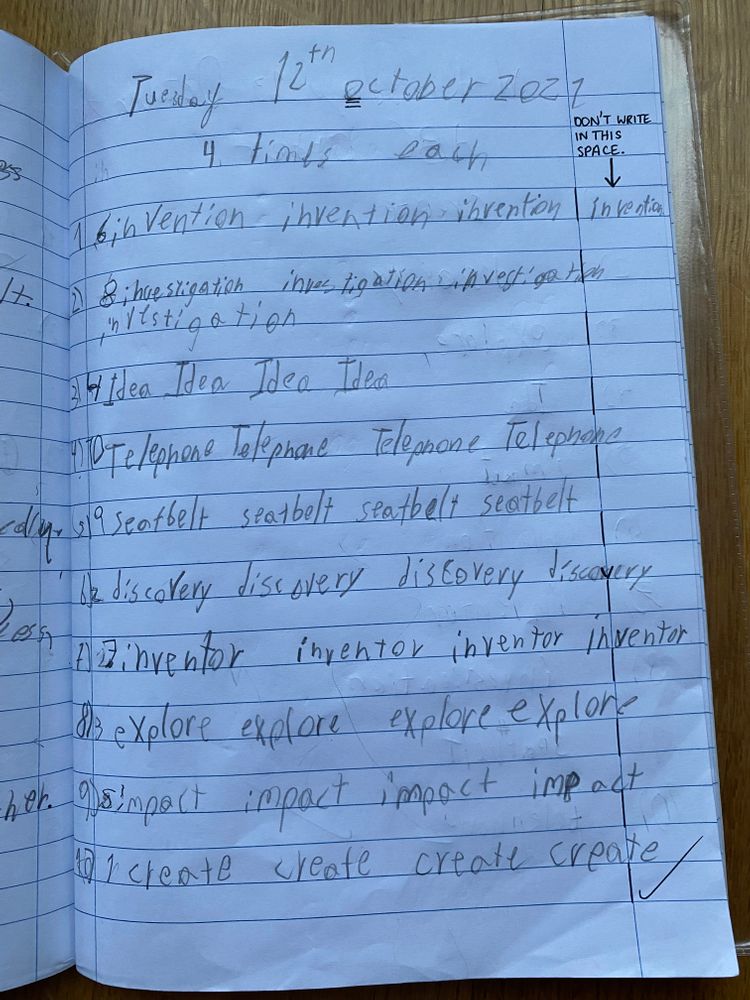 Tuesday 12th october 2021
DON'T WRITE
IN THIS
SPACE.
4 times each
1 6 invention invention invention invention
2) 8 investigation investigation investigation
investigation
3) 4 Idea Idea Idea Idea
4) 10 Telephone Telephone Telephone Telephone
5) 9 seatbelt seatbelt seatbelt seatbelt
6) 2 discovery discovery discovery discovery
7) 7 inventor inventor inventor inventor
8) 3 explore explore explore explore
9) 5 impact impact impact impact
10) 1 create create create create
her.